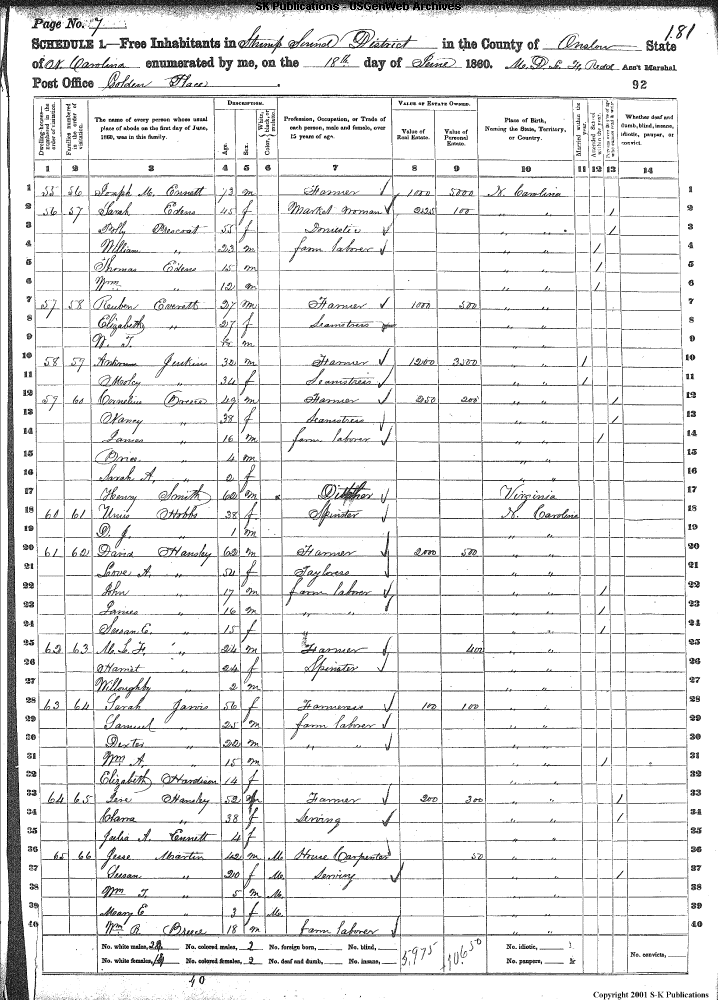 SK Publications - USGenWeb Archives
181
Page No. 7
SCHEDULE 1.—Free Inhabitants in Stump Sound District in the County of Onslow State
of N. Carolina enumerated by me, on the 18th day of June 1860. Ass't Marshal
Post Office Golden Place.
92
DESCRIPTION. VALUE OF ESTATE OWNED.
Dwelling-houses numbered in the order of visitation. Families numbered in the order of visitation. The name of every person whose usual place of abode on the first day of June, 1860, was in this family. Age. Sex. Color, White, black, or mulatto. Profession, Occupation, or Trade of each person, male and female, over 15 years of age. Value of Real Estate. Value of Personal Estate. Place of Birth, Naming the State, Territory, or Country. Married within the year. Attended School within the year. Whether deaf and dumb, blind, insane, idiotic, pauper, or convict.
1 2 3 4 5 6 7 8 9 10 11 12 13 14
1 55 56 Joseph M. Ennett 73 m Farmer 1000 5000 N. Carolina 1
2 56 57 Sarah Edens 45 f Market Woman 225 100 " " / 2
3 Polly Prescoat 55 f Domestic " " / 3
4 William " 23 m farm laborer " " / 4
5 Thomas Edens 15 m " " / 5
6 Wm " 12 m " " / 6
7 57 58 Reuben Everett 27 m Farmer 1000 500 " " 7
8 Elizabeth " 27 f Seamstress " " 8
9 W. T. m " " 9
10 58 59 Jenkins 32 m Farmer 1200 3500 " " / 10
11 " 34 f Seamstress " " / 11
12 59 60 Cornelius Breece 49 m Farmer 250 200 " " / 12
13 Nancy " 38 f Seamstress " " / 13
14 James " 16 m farm laborer " " / 14
15 " 4 m " " 15
16 Sarah A. " 2 f " " 16
17 Henry Smith 60 m Ditcher Virginia 17
18 60 61 Unis Hobbs 38 f Spinster N. Carolina 18
19 D. J. " 1 m " " 19
20 61 62 David Hansley 62 m Farmer 2000 500 " " 20
21 Love A. " 54 f Tayloress " " 21
22 John " 17 m farm laborer " " / 22
23 James " 16 m " " " " / 23
24 Susan E. " 15 f " " / 24
25 62 63 M. L. F. " 24 m Farmer 400 " " 25
26 Harriet " 24 f Spinster " " 26
27 Willoughby " 2 m " " 27
28 63 64 Sarah Jarvis 56 f Farmeress 100 100 " " 28
29 Samuel " 25 m farm laborer " " 29
30 Dexter " 20 m " " " " 30
31 Wm A. " 15 m " " / 31
32 Elizabeth Hardison 14 f " " 32
33 64 65 Hansley 52 m Farmer 200 300 " " / 33
34 Clara " 38 f Serving " " / 34
35 Julia A. Ennett 4 f " " 35
36 65 66 Jesse Martin 42 m M. House Carpenter 50 " " 36
37 Susan " 20 f M. Serving " " / 37
38 Wm T. " 5 m M. " " 38
39 Mary E " 3 f M. " " 39
40 Wm R. Breece 18 m farm laborer " " 40
No. white males, No. colored males, 2 No. foreign born, No. blind, 5,975 10650 No. idiotic,
No. white females, No. colored females, 2 No. deaf and dumb, No. insane, No. paupers, No. convicts,
40
Copyright 2001 S-K Publications